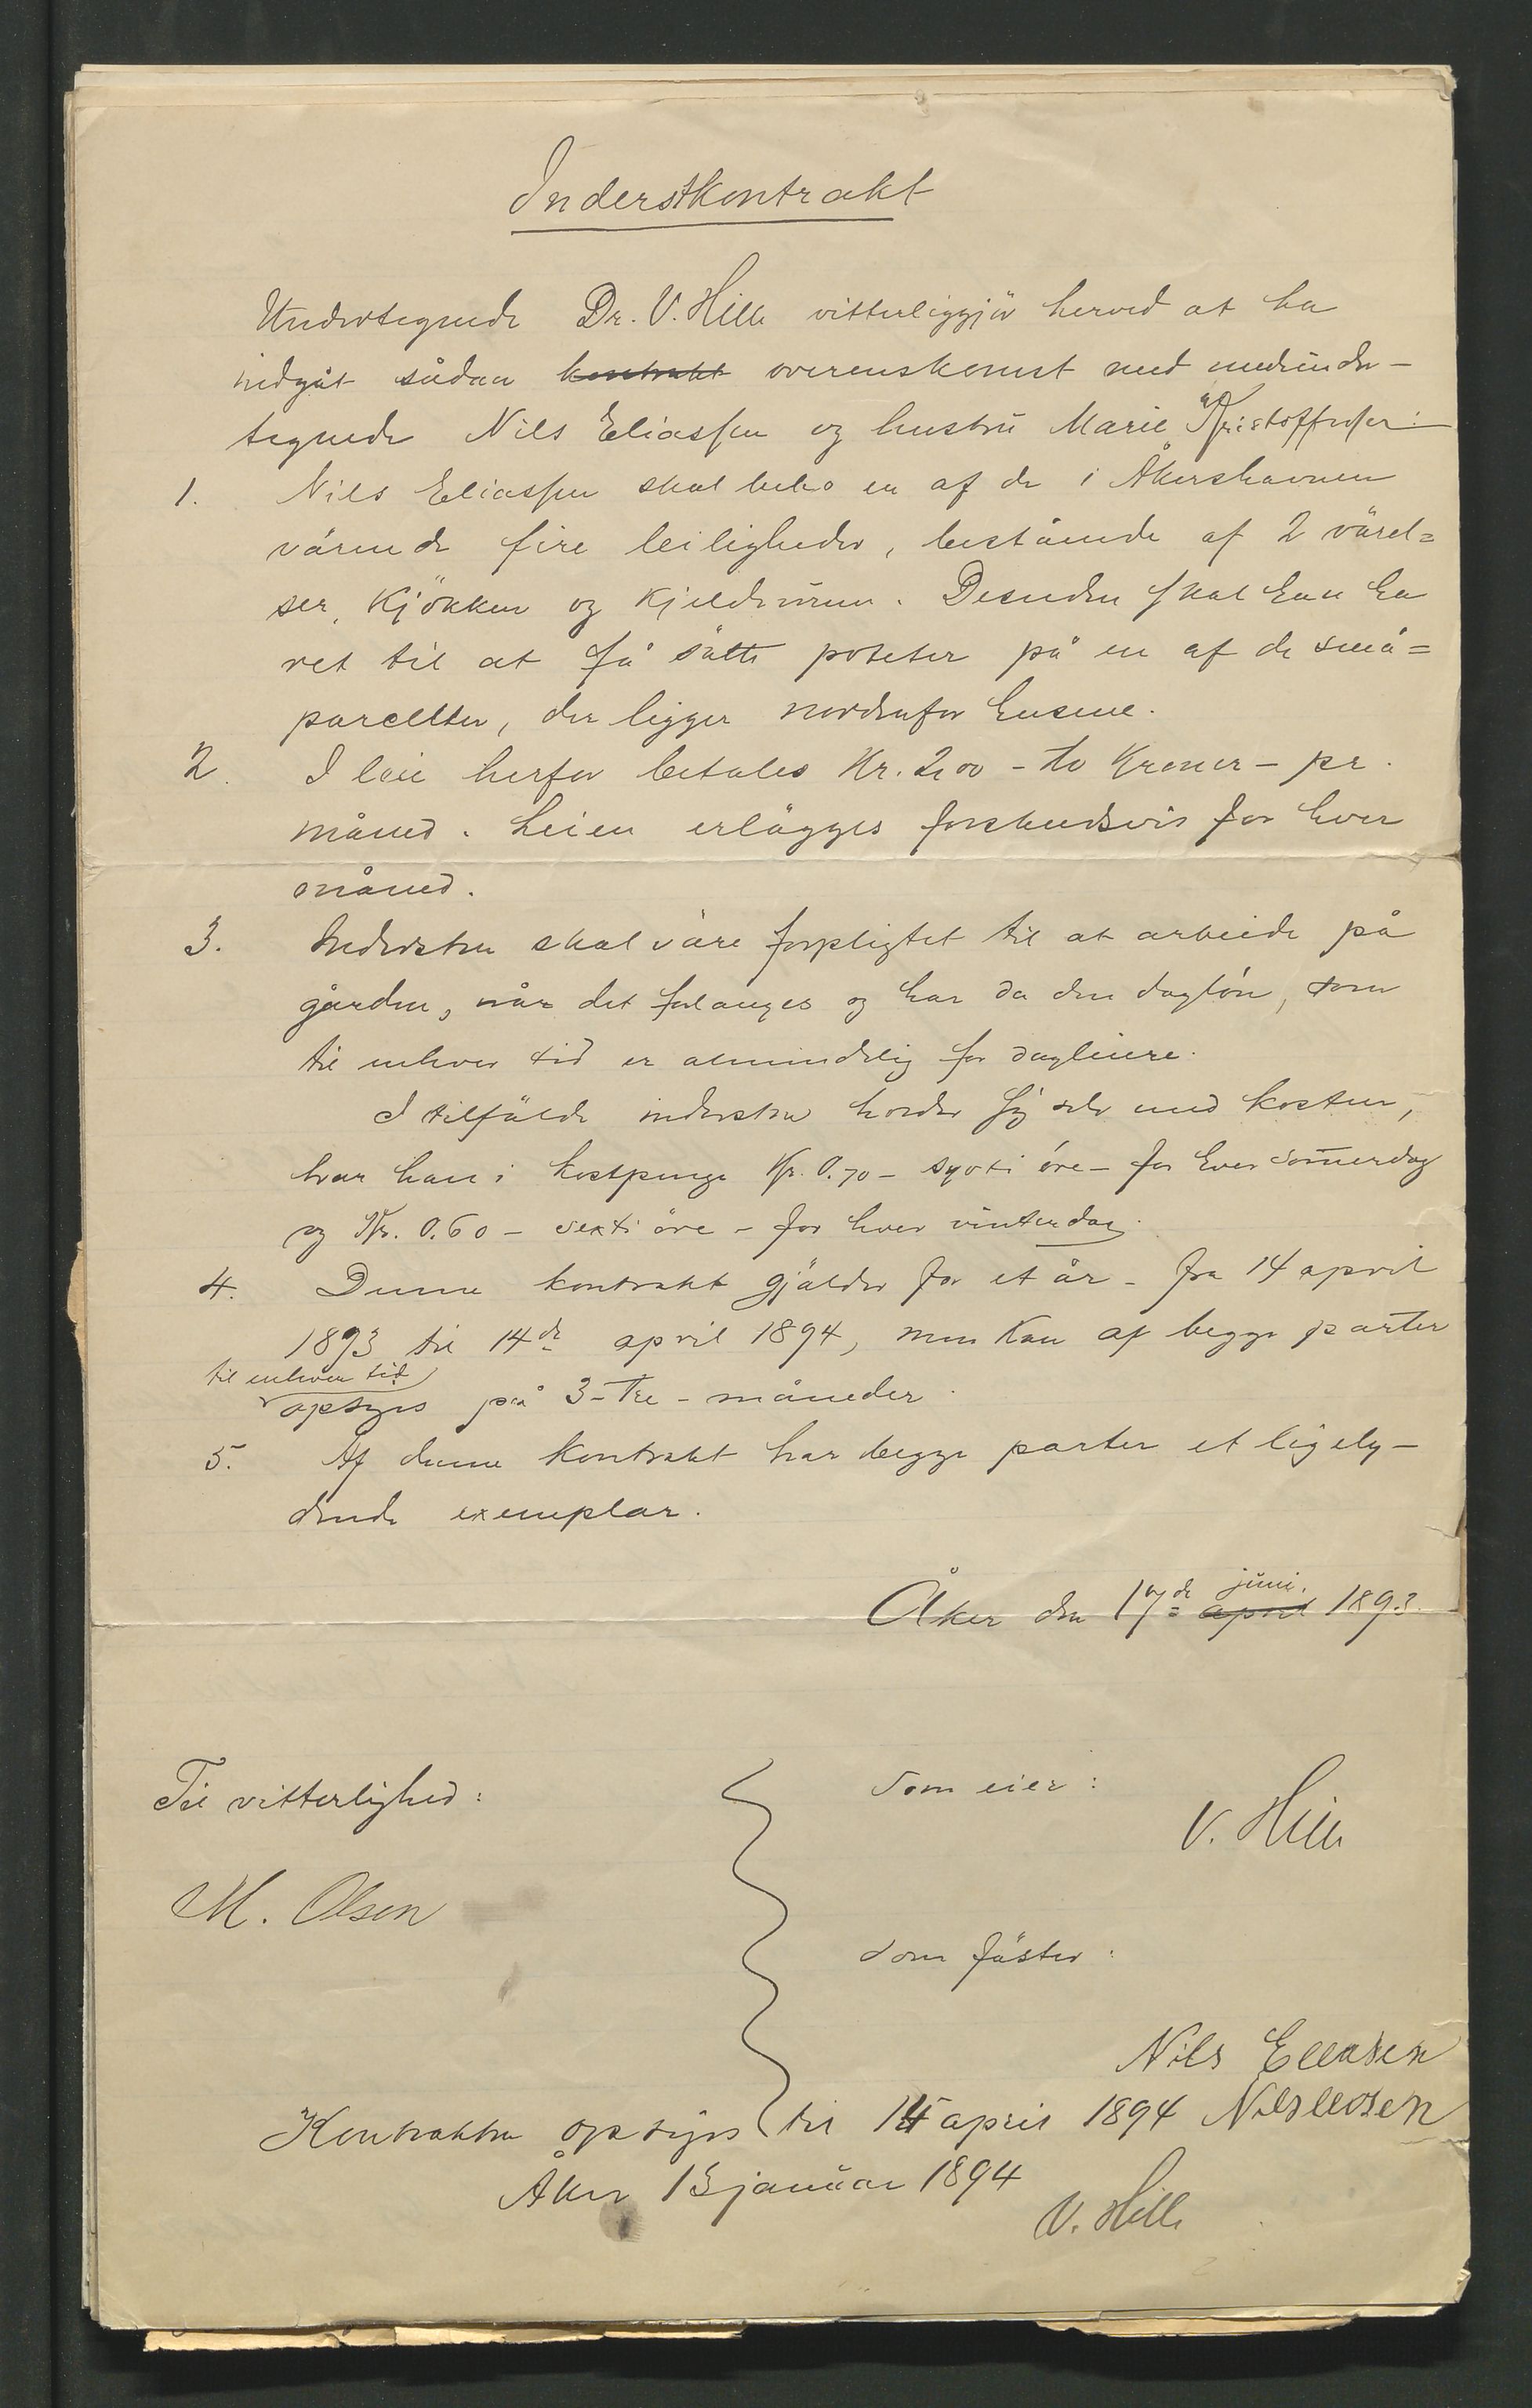 Inderstkontrakt
Undertegnede Dr. V. Hille vitterliggjör herved at ha
indgåt sådan kontrakt overenskomst med medunder-
tegnede Nils Eliassen og hustru Marie Kristoffersen:
1. Nils Eliassen skal bebo en af de i Åkershavnen
värende fire leiligheder, bestående af 2 värel=
ser, kjökken og kjelderrum. Desuden skal han ha
ret til at få sätte poteter på en af de små=
parcelter, der ligger nordenfor husene.
2. I leie herfor betales Kr. 2,00 - to kroner - pr.
måned. Leien erlägges forskudsvis for hver
måned.
3. Indersten skal väre forpligtet til at arbeide på
gården, når det forlanges og har da den daglön, som
til enhver tid er almindelig for dagleiere.
I tilfälde indersten holder sig selv med kosten,
har han i kostpenge Kr. 0.70 - sytti öre - for hver sommerdag
og Kr. 0.60 - sexti öre - for hver vinterdag.
4. Denne kontrakt gjälder for et år - fra 14 april
1893 til 14de april 1894, men kan af begge parter
til enhver tid
opsiges på 3 - tre - måneder.
5. Af denne kontrakt har begge parter et ligely-
dende exemplar.
juni.
Åker den 17de april 1893.
Til vitterlighed:
M. Olsen
Som eier:
V. Hille
Som fäster:
Nils Eleasen
Kontrakten opsiges til 14 april 1894
Åker 13 januar 1894
V. Hille